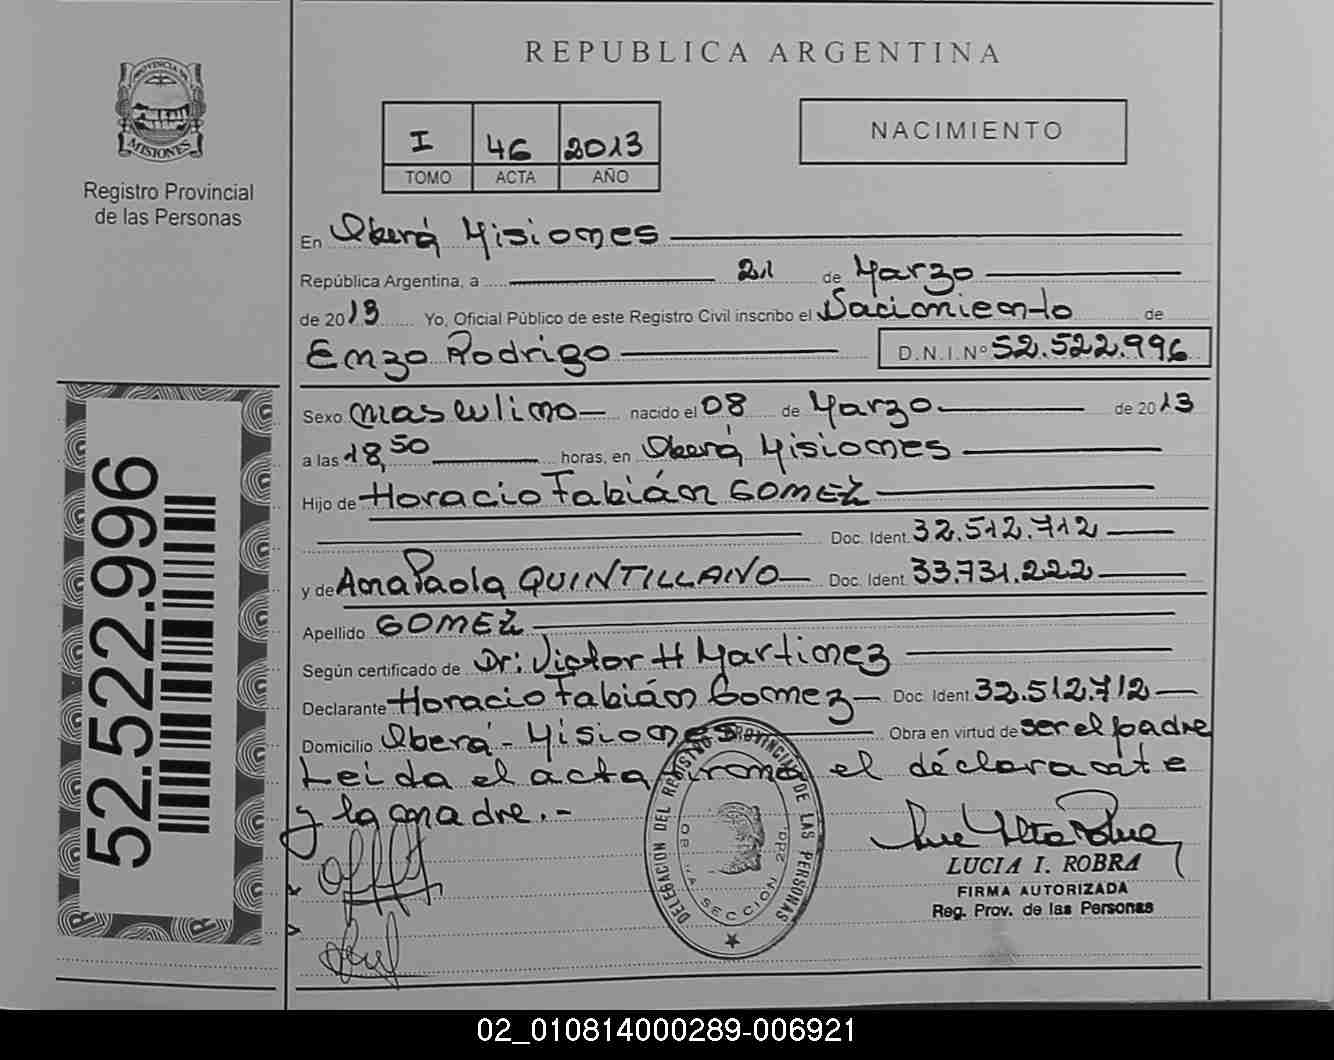 PROVINCIA DE
MISIONES
Registro Provincial
de las Personas
52.522.996
REPUBLICA ARGENTINA
I 46 2013
TOMO ACTA AÑO
NACIMIENTO
En Oberá Misiones
República Argentina, a 21 de Marzo
de 2013 Yo, Oficial Público de este Registro Civil inscribo el Nacimiento de
Enzo Rodrigo D.N.I.Nº 52.522.996
Sexo masculino nacido el 08 de Marzo de 2013
a las 18,50 horas, en Oberá Misiones
Hijo de Horacio Fabián GOMEZ
Doc. Ident. 32.512.712
y de Ana Paola QUINTILLANO Doc. Ident. 33.731.222
Apellido GOMEZ
Según certificado de Dr: Victor H Martinez
Declarante Horacio Fabián Gomez Doc. Ident. 32.512.712
Domicilio Oberá - Misiones Obra en virtud de ser el padre
Leida el acta, firma el declarante
y la madre.-
DELEGACION DEL REGISTRO PROVINCIAL DE LAS PERSONAS
SECCION 2da.
LUCIA I. ROBRA
FIRMA AUTORIZADA
Reg. Prov. de las Personas
02_010814000289-006921